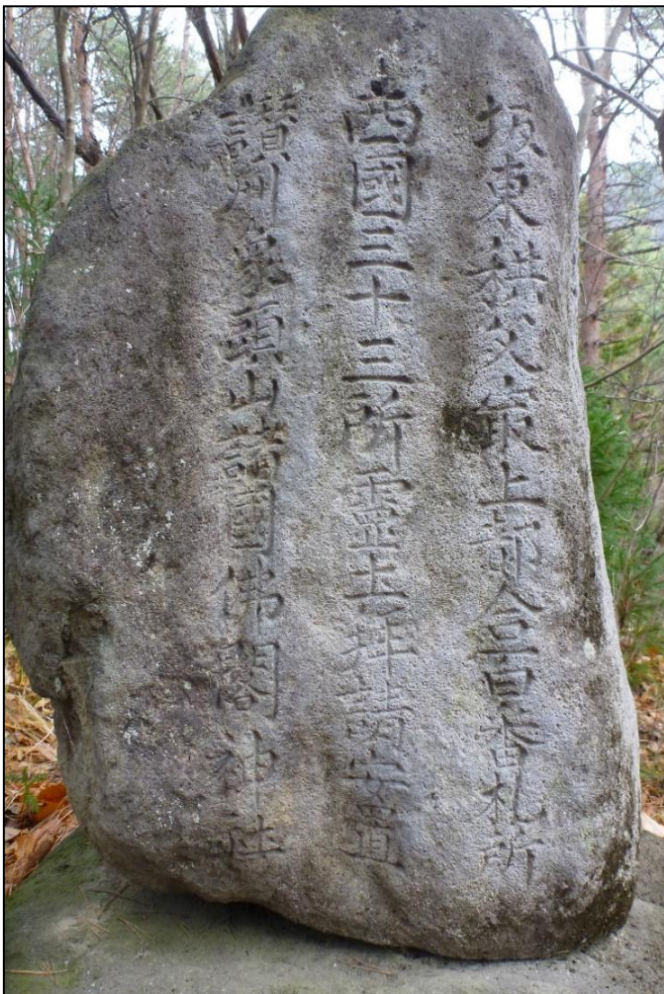 坂東秩父最上都合百番札所
西國三十三所霊土拝請安置
讃州象頭山諸國佛閣神社